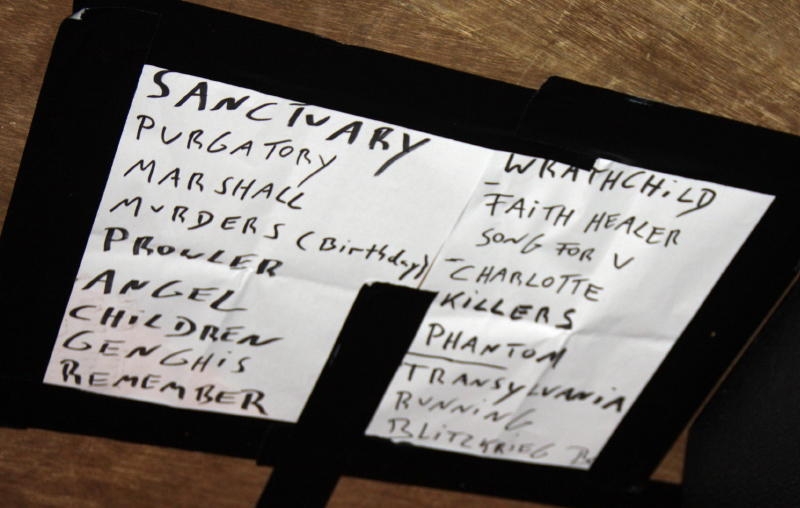 SANCTUARY
PURGATORY
MARSHALL
MURDERS (Birthday)
PROWLER
ANGEL
CHiLDREN
GENGHiS
REMEMBER
WRATHCHiLD
FAiTH HEALER
SONG FOR V
CHARLOTTE
KiLLERS
PHANTOM
TRANSYLVANiA
RUNNiNG
BLiTZKRiEG